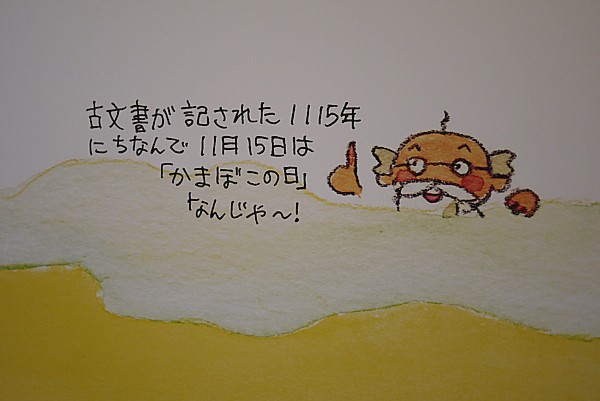 古文書が記された1115年
にちなんで11月15日は
「かまぼこの日」
なんじゃ〜!